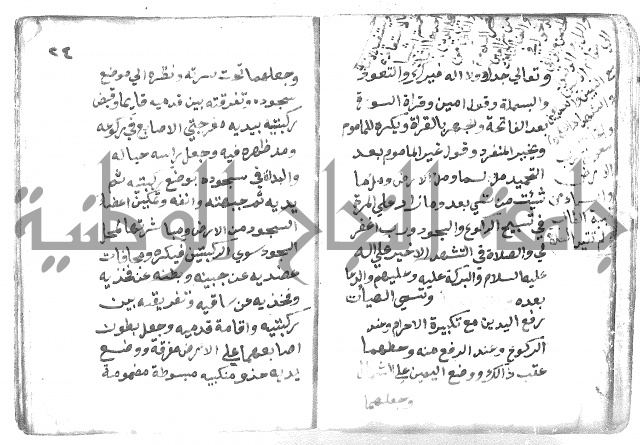 وتعالى جدك ولا اله غيرك والتعوذ
والبسملة وقول امين وقراة السورة
بعد الفاتحة والجهر بالقراة ويكره للماموم
ويخير المنفرد وقول غير الماموم بعد
التحميد ملء السما وملء الارض وملء ما
شئت من شي بعد وما زاد على المرة
في تسبيح الركوع والسجود ورب اغفر
لي والصلاة في التشهد الاخير على اله
عليه السلام والبركة عليه وعليهم والدعا
بعده وتسمى الهيات
رفع اليدين مع تكبيرة الاحرام وعند
الركوع وعند الرفع منه وحطهما
عقب ذالك ووضع اليمين على الشمال
وجعلهما
٢٤
وجعلهما تحت سرته ونظره الى موضع
سجوده وتفرقته بين قدميه قايما وقبض
ركبتيه بيديه مفرجتي الاصابع في ركوعه
ومد ظهره فيه وجعل راسه حياله
والبداة في سجوده بوضع ركبتيه ثم
يديه ثم جبهته وانفه وتمكين اعضا
السجود من الارض ومباشرتها لمحل
السجود سوى الركبتين فيكره ومجافات
عضديه عن جنبيه وبطنه عن فخذيه
وفخذيه عن ساقيه وتفريقه بين
ركبتيه واقامة قدميه وجعل بطون
اصابعهما على الارض مفرقة ووضع
يديه حذو منكبيه مبسوطة مضمومة
جامعة النجاح الوطنية